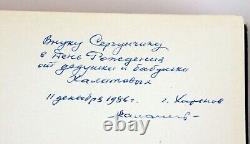 Внуку Сергунчику
в День Рождения
от дедушки и бабушки
Халатовых
11 декабря 1986 г. г. Харьков